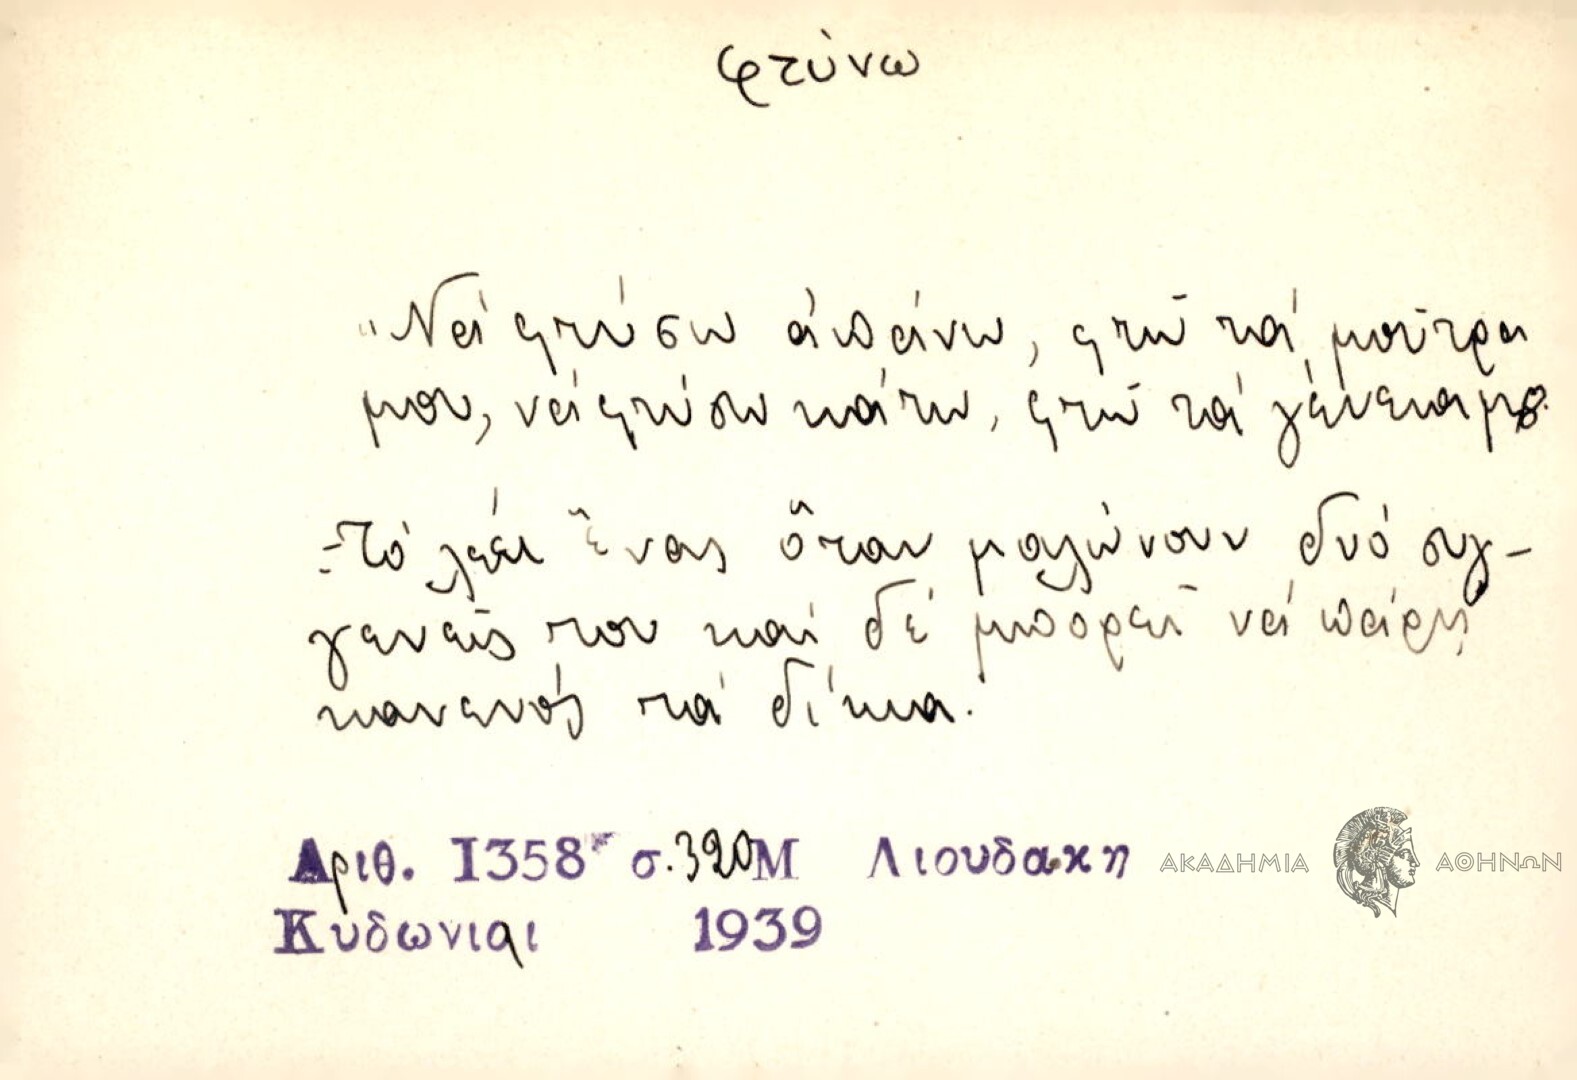 φτύνω
"Νά φτύσω ἀπάνω, φτῶ τά μοῦτρα
μου, νά φτύσω κάτω, φτῶ τά γένεια μου.
-Τό λέει ἕνας ὅταν μαλώνουν δυό συγ-
γενεῖς του καί δέ μπορεῖ νά πάρῃ
κανενός τά δίκια.
Αριθ. 1358 σ. 320 Μ Λιουδακη
Κυδωνιαι 1939
ΑΚΑΔΗΜΙΑ ΑΘΗΝΩΝ